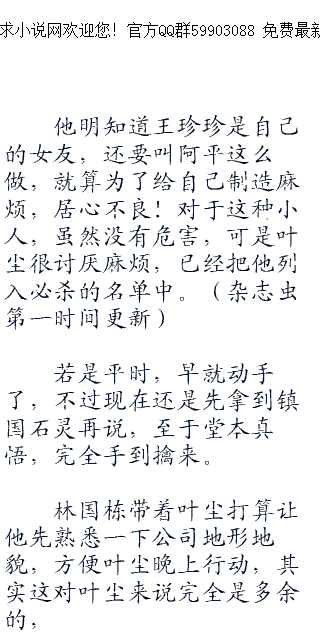 求小说网欢迎您！官方QQ群59903088 免费最新
他明知道王珍珍是自己
的女友，还要叫阿平这么
做，就算为了给自己制造麻
烦，居心不良！对于这种小
人，虽然没有危害，可是叶
尘很讨厌麻烦，已经把他列
入必杀的名单中。（杂志虫
第一时间更新）
若是平时，早就动手
了，不过现在还是先拿到镇
国石灵再说，至于堂本真
悟，完全手到擒来。
林国栋带着叶尘打算让
他先熟悉一下公司地形地
貌，方便叶尘晚上行动，其
实这对叶尘来说完全是多余
的，